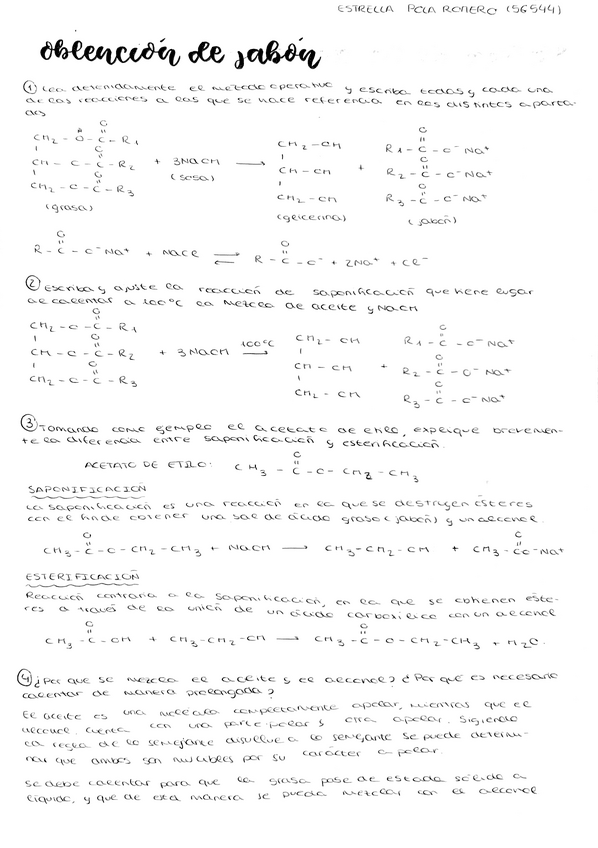 ESTRELLA POLA ROMERO (56544)
obtención de jabón
① Lea detenidamente el metodo operativo y escriba todas y cada una
de las reacciones a las que se hace referencia en los distintos aparta-
dos
O
CH2 - O - C - R1
O
CH - O - C - R2 + 3NaOH → CH2 - OH
O
CH2 - O - C - R3
CH - OH
CH2 - OH
+
O
R1 - C - O⁻Na⁺
O
R2 - C - O⁻Na⁺
O
R3 - C - O⁻Na⁺
(grasa) (sosa) (glicerina) (jabón)
O
R - C - O⁻Na⁺ + NaCl ⇌ R - C - O⁻ + 2Na⁺ + Cl⁻
② Escriba y ajuste la reacción de saponificación que tiene lugar
al calentar a 100ºC la mezcla de aceite y NaOH
O
CH2 - O - C - R1
O
CH - O - C - R2 + 3NaOH 100ºC →
O
CH2 - O - C - R3
CH2 - OH
CH - OH
CH2 - OH
+
O
R1 - C - O⁻Na⁺
O
R2 - C - O⁻Na⁺
O
R3 - C - O⁻Na⁺
③ Tomando como ejemplo el acetato de etilo, explique brevemen-
te la diferencia entre saponificación y esterificación.
O
ACETATO DE ETILO: CH3 - C - O - CH2 - CH3
SAPONIFICACIÓN
La saponificación es una reacción en la que se destruyen ésteres
con el fin de obtener una sal de ácido graso (jabón) y un alcohol.
O
CH3 - C - O - CH2 - CH3 + NaOH → CH3 - CH2 - OH + CH3 - CO⁻Na⁺
ESTERIFICACIÓN
Reacción contraria a la saponificación, en la que se obtienen éste-
res a través de la unión de un ácido carboxílico con un alcohol
O
CH3 - C - OH + CH3 - CH2 - OH → CH3 - C - O - CH2 - CH3 + H2O.
④ ¿Por que se mezcla el aceite y el alcohol? ¿Por qué es necesario
calentar de manera prolongada?
El aceite es una molécula completamente apolar, mientras que el
alcohol cuenta con una parte polar y otra apolar. Sigiendo
la regla de lo semejante disuelve a lo semejante se puede determi-
nar que ambos son miscibles por su carácter apolar.
Se debe calentar para que la grasa pase de estado sólido a
líquido, y que de esta manera se pueda mezclar con el alcohol